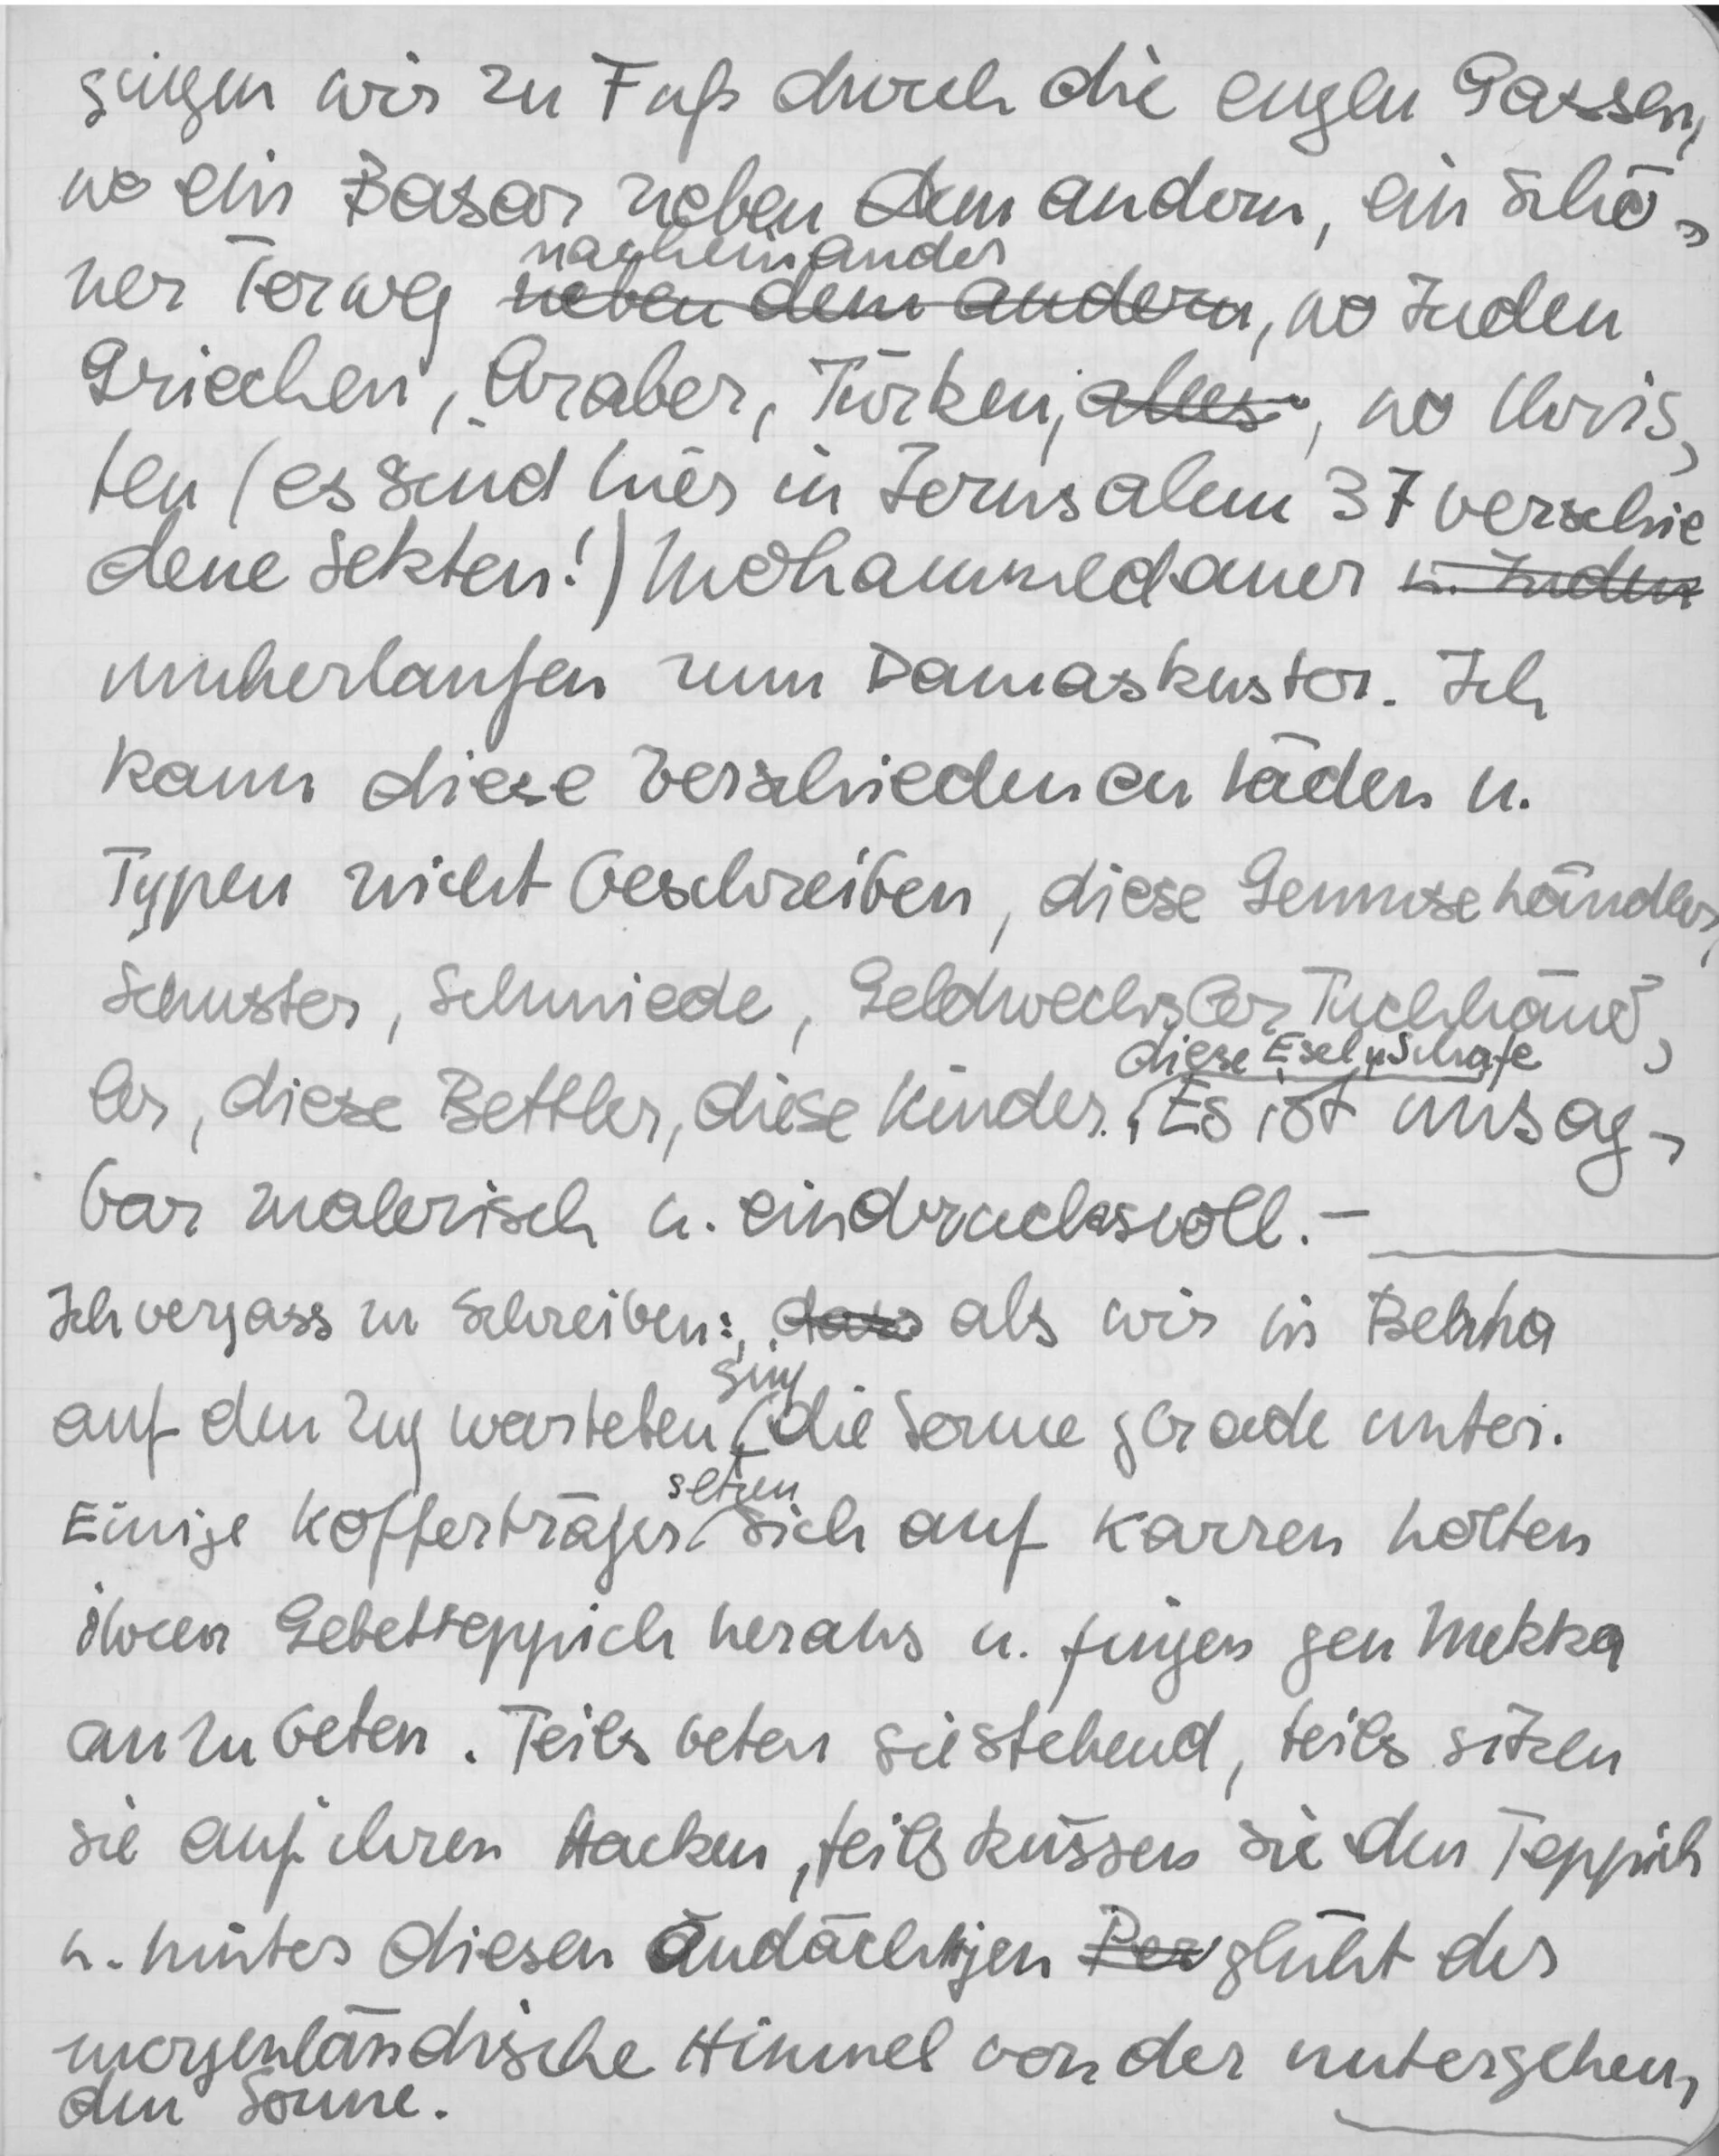 gingen wir zu Fuß durch die engen Gassen,
wo ein Basar neben dem andern, ein schö-
nacheinander
ner Torweg neben dem andern, wo Juden
Griechen, Araber, Türken, alles, wo Chris-
ten (es sind hier in Jerusalem 37 verschie
dene Sekten!) Mohammedaner u. Juden
umherlaufen zum Damaskustor. Ich
kann diese verschiedenen Läden u.
Typen nicht beschreiben, diese Gemüsehändler,
Schuster, Schmiede, Geldwechsler Tuchhänd-
diese Esel u Schafe
ler, diese Bettler, diese Kinder. Es ist unsag-
bar malerisch u. eindrucksvoll. –
Ich vergass zu schreiben: dass als wir in Benha
ging
auf den Zug warteten, die Sonne gerade unter.
setzen
Einige Kofferträger sich auf Karren holten
ihren Gebetteppich heraus u. fingen gen Mekka
an zu beten. Teils beten sie stehend, teils sitzen
sie auf ihren Hacken, teils küssen sie den Teppich
u. hinter diesen Andächtigen Per glüht der
morgenländische Himmel von der untergehen-
den Sonne.